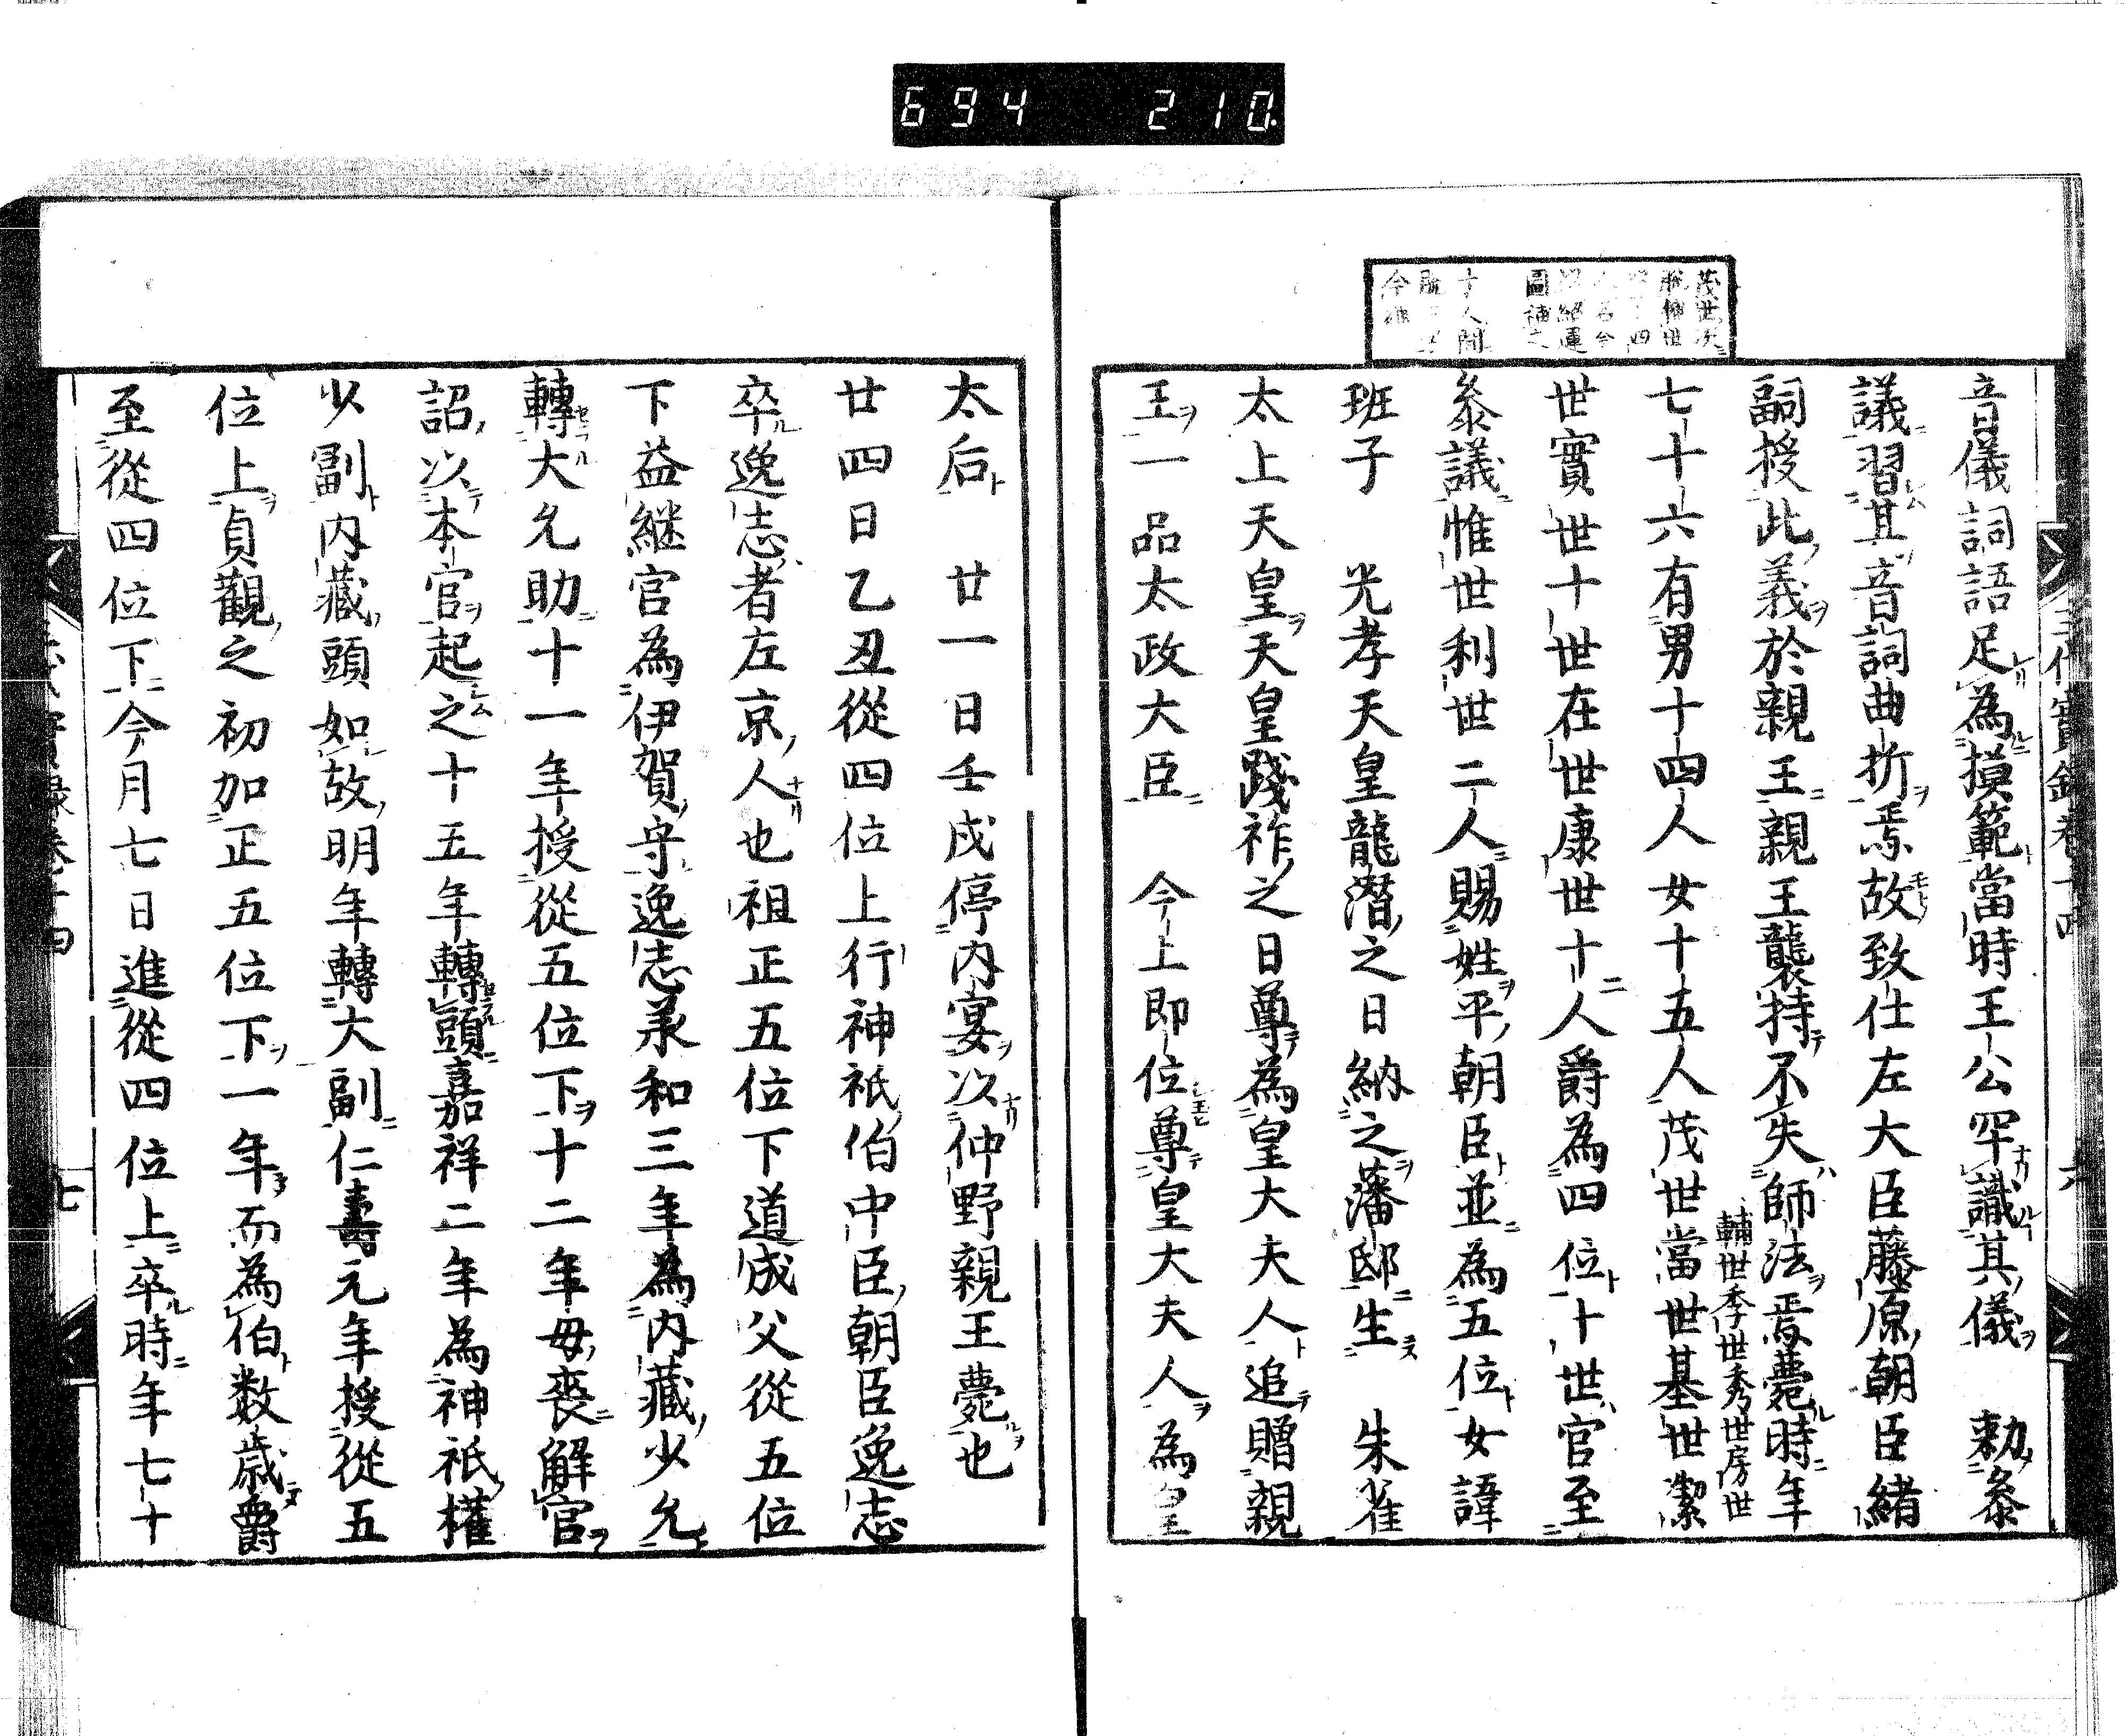 694 210
茂世次
圖補之
音儀詞語足為摸範當時王公罕識其儀 勅叅
議習其音詞曲折焉故致仕左大臣藤原朝臣緒
嗣授此義於親王親王襲持不失師法焉薨時年
輔世季世秀世房世
七十六有男十四人女十五人茂世當世基世潔
世實世十世在世康世十二人爵為四位十世官至
叅議惟世利世二人賜姓平朝臣並為五位女諱
班子 光孝天皇龍潜之日納之藩邸生 朱雀
太上天皇天皇踐祚之日尊為皇大夫人追贈親
王一品太政大臣 今上即位尊皇大夫人為皇
太后 廿一日壬戌停内宴次仲野親王薨也
廿四日乙丑從四位上行神祇伯中臣朝臣逸志
卒逸志者左京人也祖正五位下道成父從五位
下益継官為伊賀守逸志承和三年為内藏少允
轉大允助十一年授從五位下十二年母喪解官
詔以本官起之十五年轉頭嘉祥二年為神祇權
少副内藏頭如故明年轉大副仁壽元年授從五
位上貞觀之初加正五位下一年而為伯数歳爵
至從四位下今月七日進從四位上卒時年七十